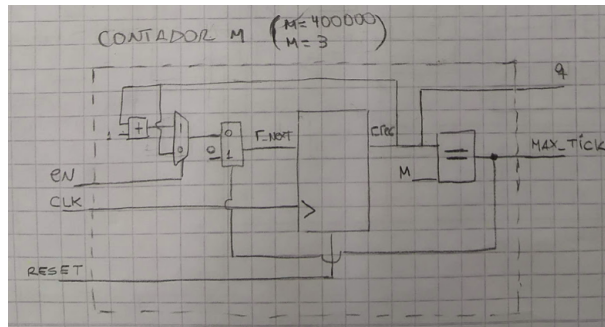 CONTADOR M (M=400000
M=3)
q
1
+
1
0
0
0
1
r_next
r_reg
=
M
MAX_TICK
EN
CLK
RESET